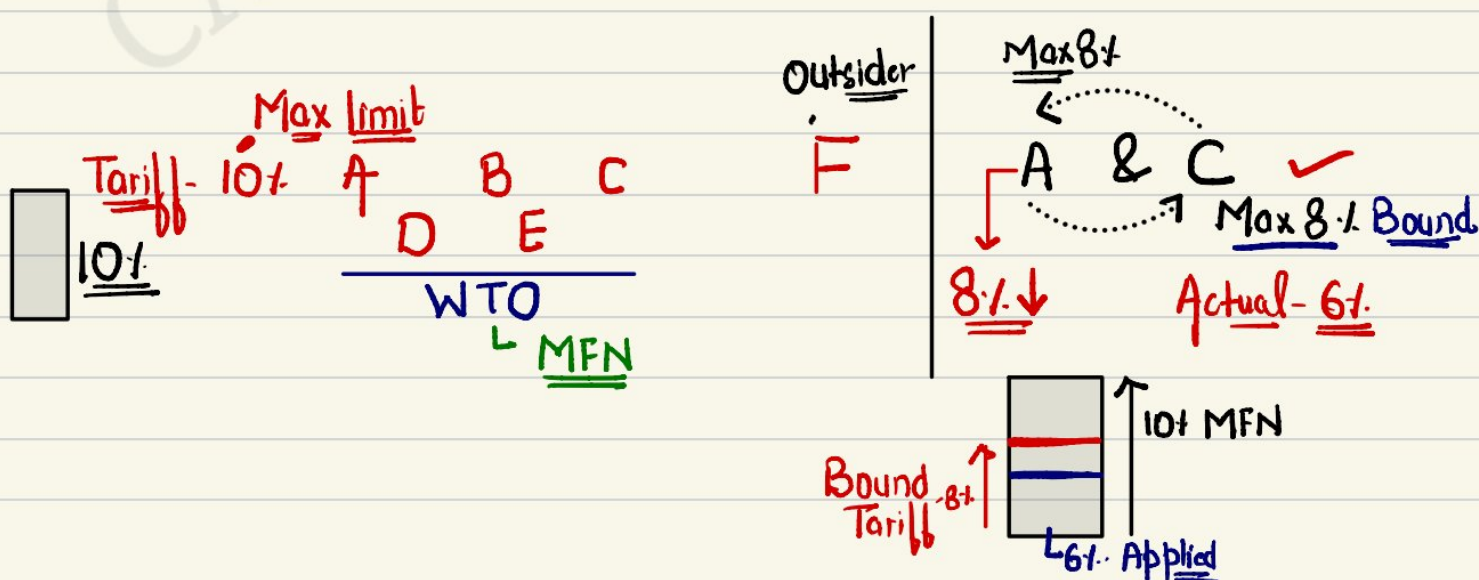 Max limit
Tariff- 10% A B C
D E
10%
WTO
MFN
Outsider
F
Max 8%
A & C
Max 8% Bound
8% Actual- 6%
10% MFN
Bound Tariff -8%
6% Applied